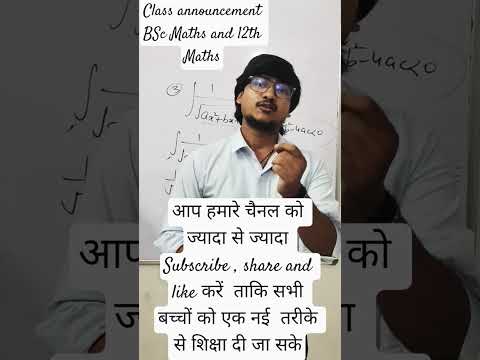 Class announcement
BSc Maths and 12th
Maths
③ ∫ 1
b²-4ac<0
आप हमारे चैनल को
ज्यादा से ज्यादा
Subscribe , share and
like करें ताकि सभी
बच्चों को एक नई तरीके
से शिक्षा दी जा सके